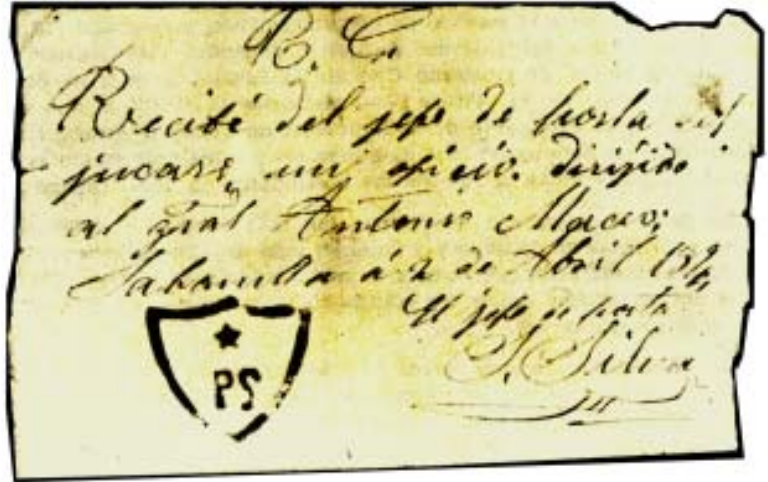 R. C.
Recibí del jefe de posta del
jucaro, un oficio. dirijido
al gral Antonio Maceo;
Sabanilla á 2 de Abril
El jefe de posta
S. Silva
PS